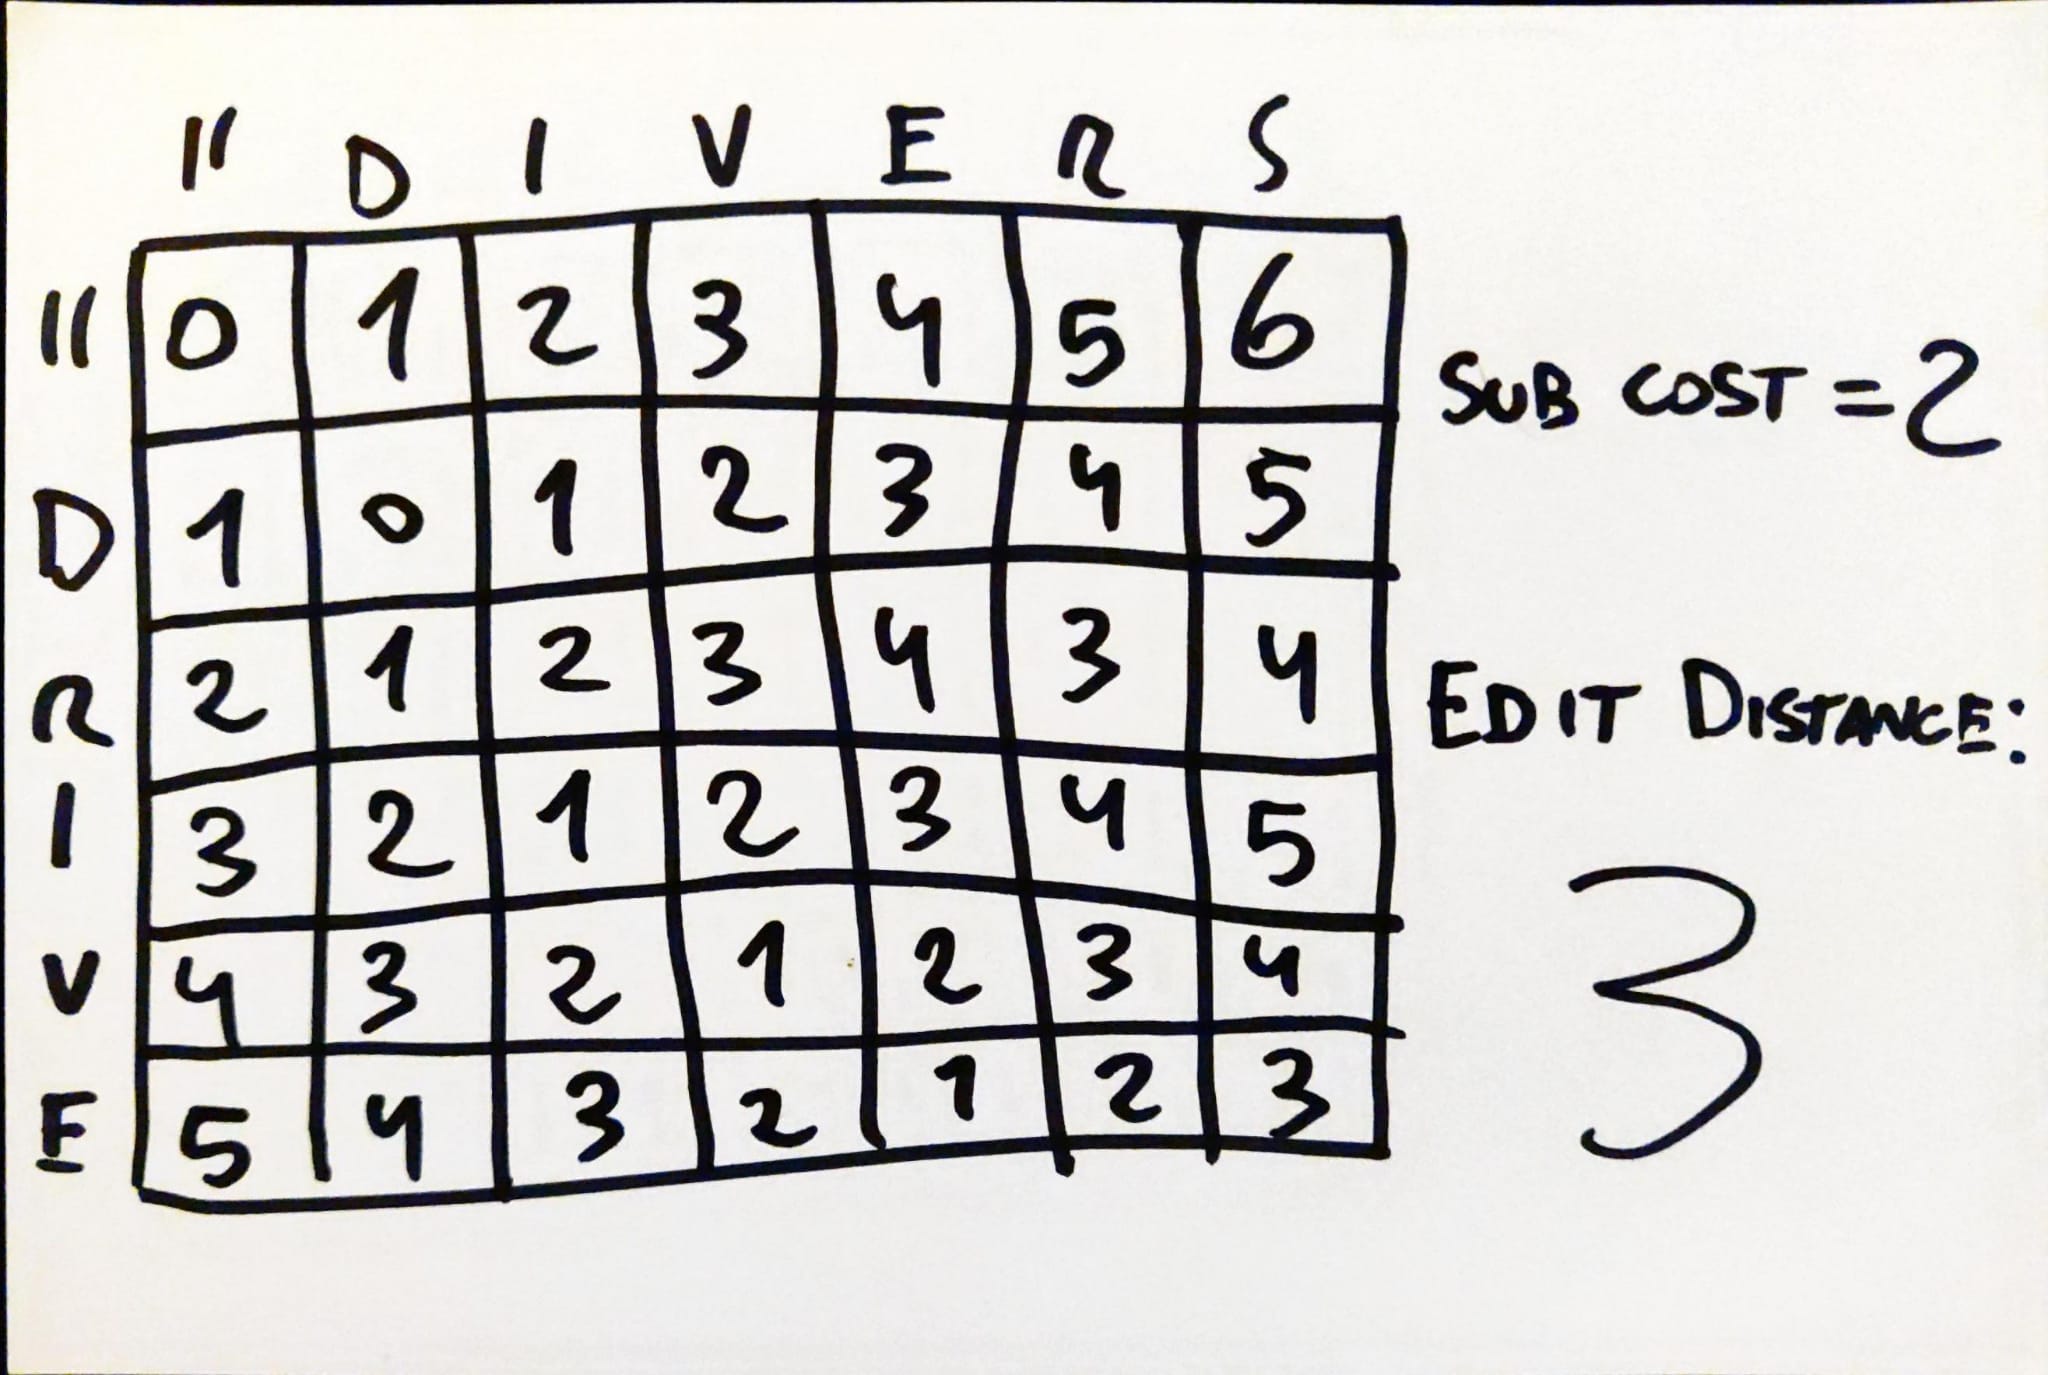 " D I V E R S
" 0 1 2 3 4 5 6
D 1 0 1 2 3 4 5
R 2 1 2 3 4 3 4
I 3 2 1 2 3 4 5
V 4 3 2 1 2 3 4
E 5 4 3 2 1 2 3
SUB COST = 2
EDIT DISTANCE:
3